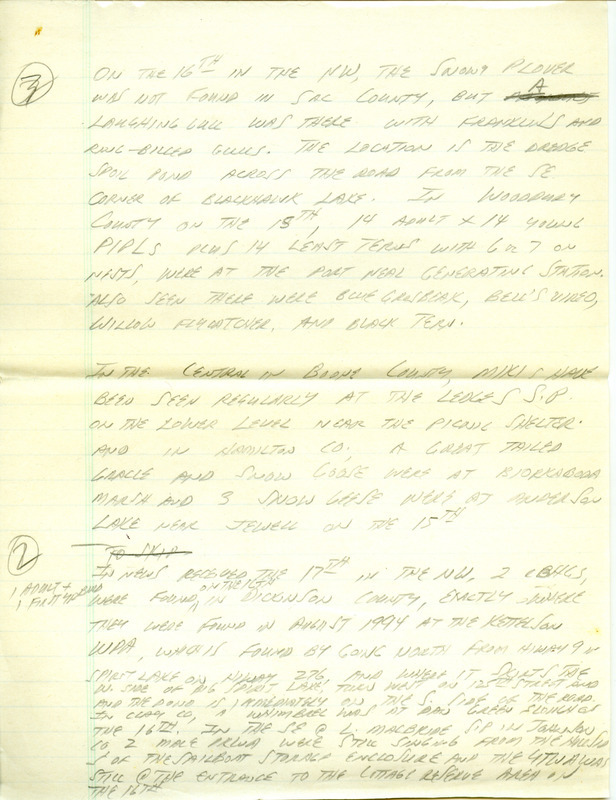 3
ON THE 16TH IN THE NW, THE SNOWY PLOVER
WAS NOT FOUND IN SAC COUNTY, BUT A
LAUGHING GULL WAS THERE WITH FRANKLINS AND
RING-BILLED GULLS. THE LOCATION IS THE DREDGE
SPOIL POND ACROSS THE ROAD FROM THE SE
CORNER OF BLACKHAWK LAKE. IN WOODBURY
COUNTY ON THE 15TH, 14 ADULT + 14 YOUNG
PIPLS PLUS 14 LEAST TERNS WITH 6 OR 7 ON
NESTS, WERE AT THE PORT NEAL GENERATING STATION.
ALSO SEEN THERE WERE BLUE GROSBEAK, BELL'S VIREO,
WILLOW FLYCATCHER, AND BLACK TERN.
IN THE CENTRAL IN BOONE COUNTY, MIKIS HAVE
BEEN SEEN REGULARLY AT THE LEDGES S.P.
ON THE LOWER LEVEL NEAR THE PICNIC SHELTER.
AND IN HAMILTON CO, A GREAT TAILED
GRACLE AND SNOW GOOSE WERE AT BJORKBODA
MARSH AND 3 SNOW GEESE WERE AT ANDERSON
LAKE NEAR JEWELL ON THE 15TH
2
TO SKIP
IN NEWS RECEIVED THE 17TH IN THE NW, 2 CBHGS,
1 ADULT +
1 FIRST
WERE FOUND, ON THE 16TH IN DICKINSON COUNTY, EXACTLY WHERE
THEY WERE FOUND IN AUGUST 1994 AT THE KETTELSON
WPA, WHICH IS FOUND BY GOING NORTH FROM HIWAY 9 IN
SPIRIT LAKE ON HIWAY 276, AND WHERE IT SKIRTS THE
SIDE OF BIG SPIRIT LAKE, TURN WEST ON 125TH STREET AND
AND THE POND IS IMMEDIATELY ON THE S. SIDE OF THE ROAD.
IN CLAY CO, 1 WHIMBREL WAS AT DAN GREEN SLOUGH ON
THE 16TH. IN THE SE @ L. MACBRIDE S.P. IN JOHNSON
CO 2 MALE PRWA WERE STILL SINGING FROM THE HILLSIDE
S OF THE SAILBOAT STORAGE ENCLOSURE AND THE YTWA WAS
STILL @ THE ENTRANCE TO THE COTTAGE RESERVE AREA ON
THE 16TH